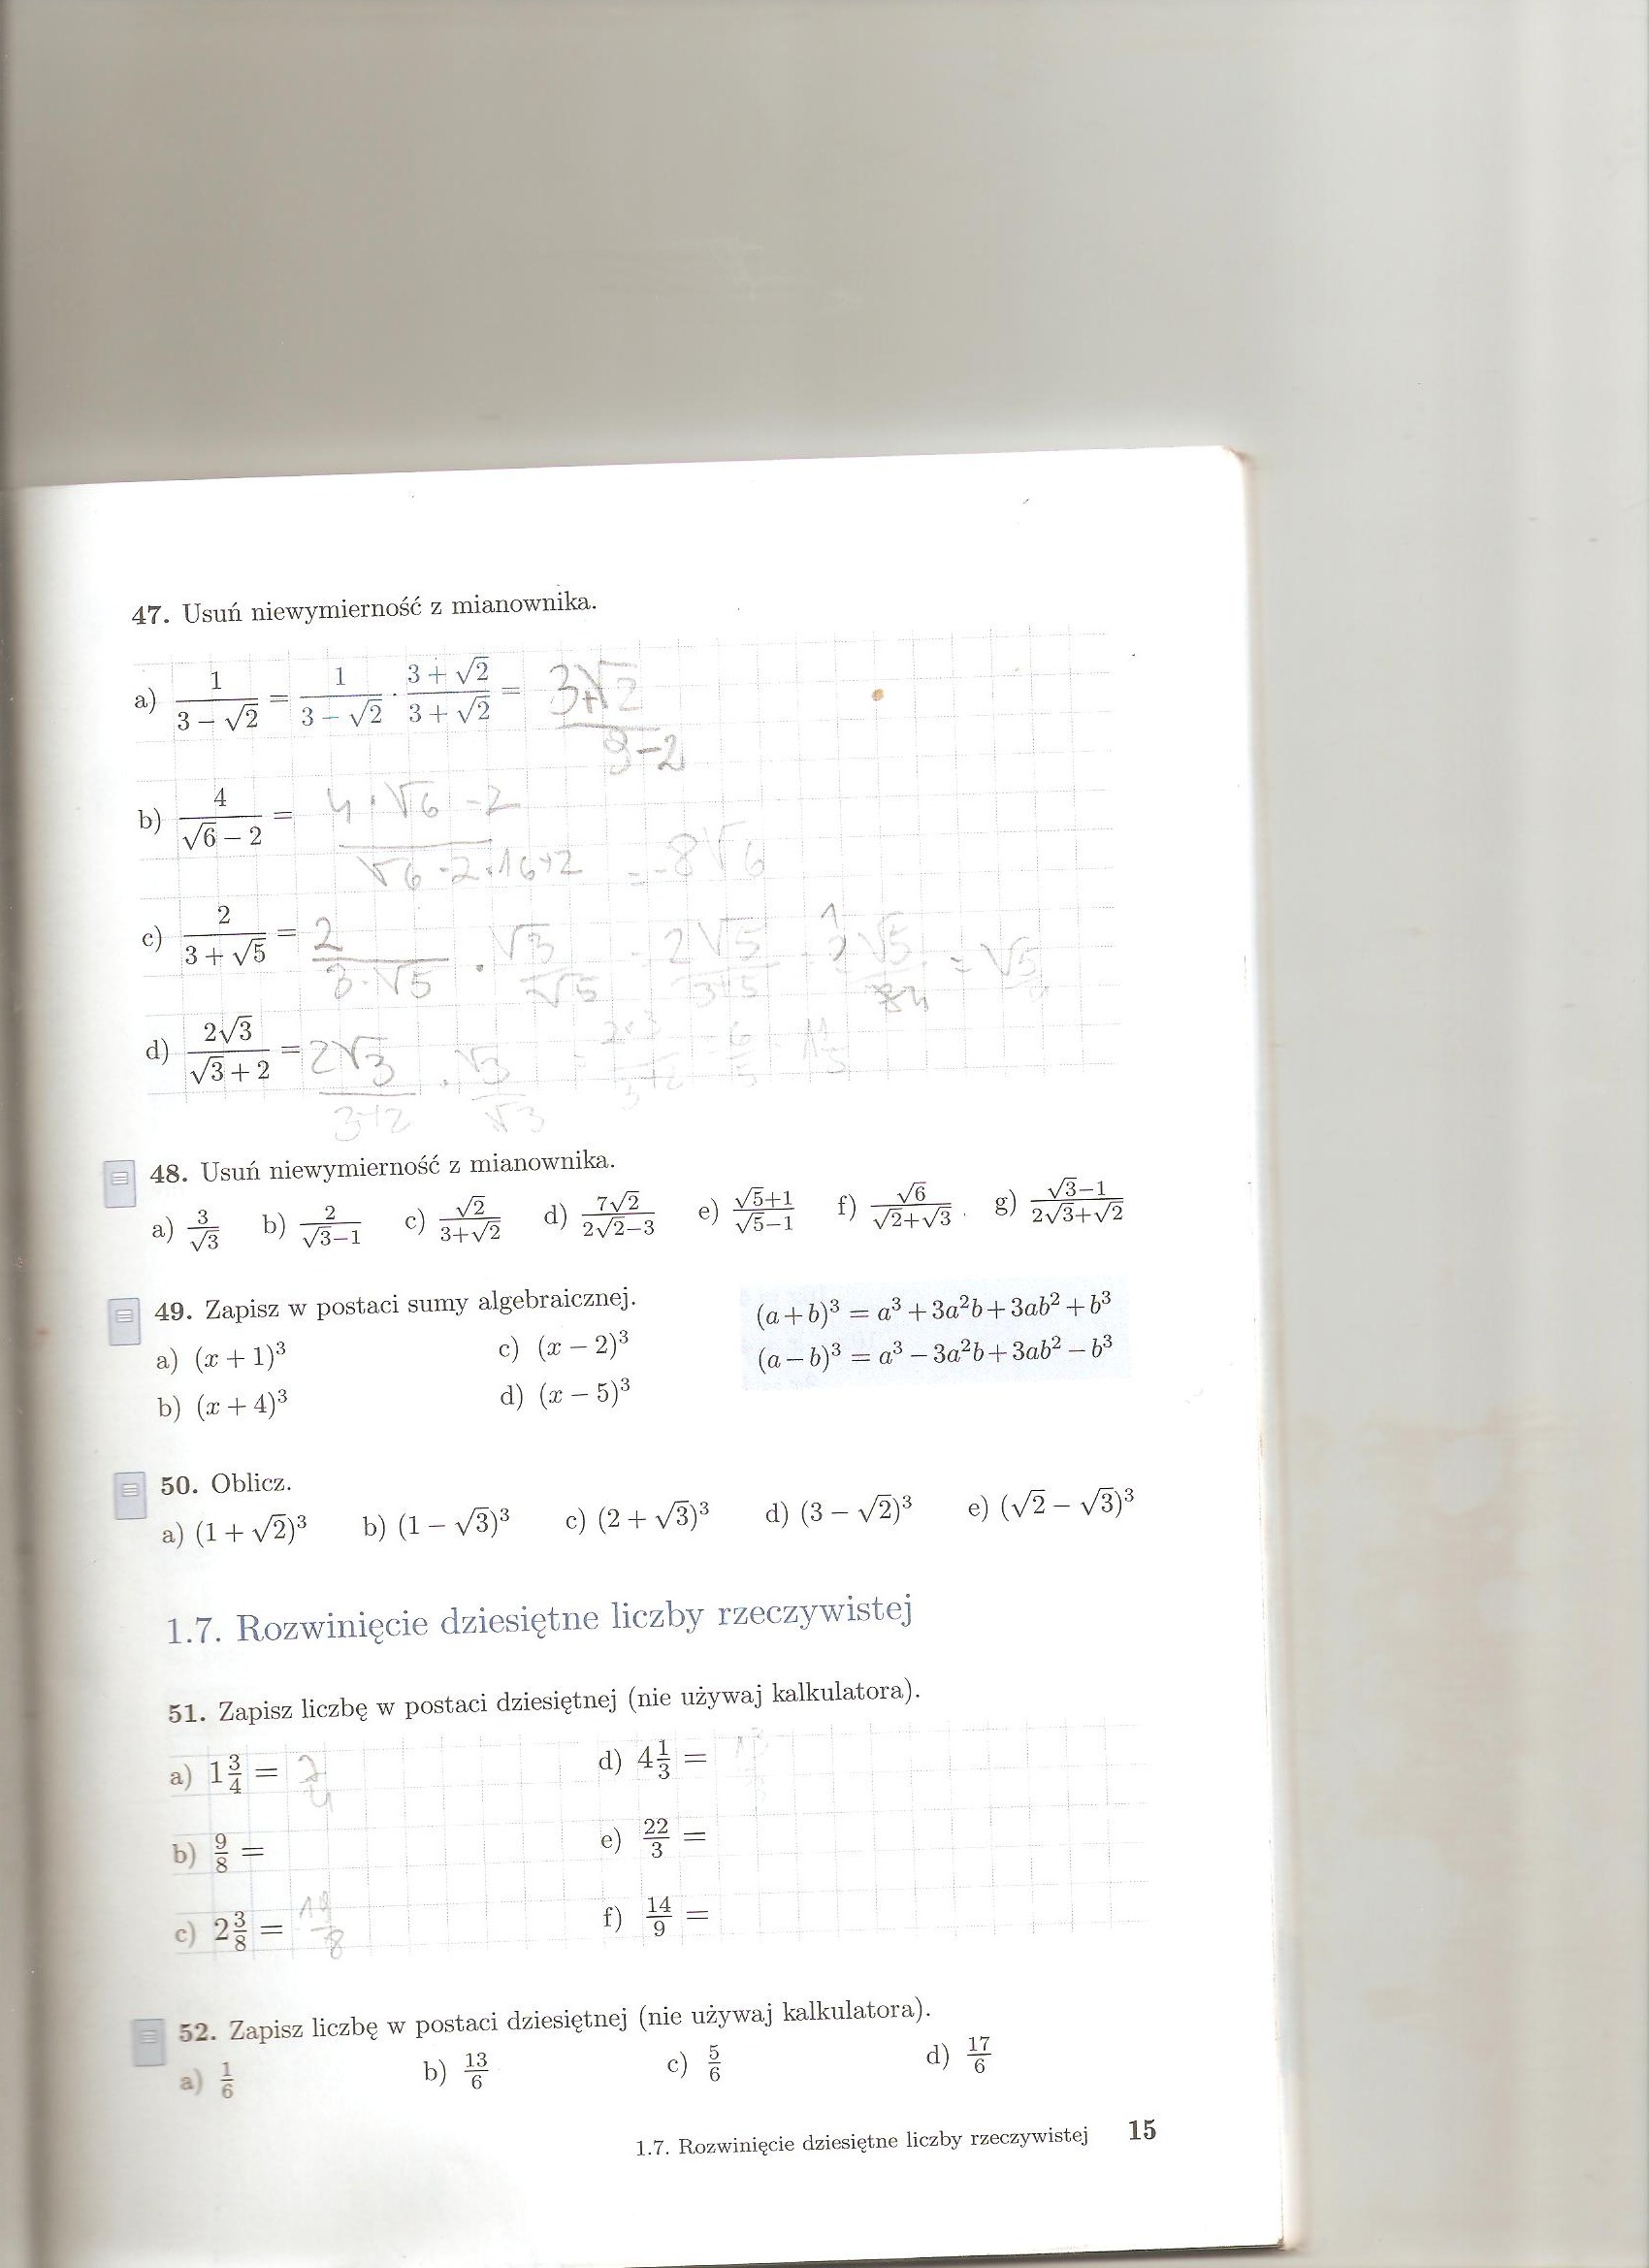 47. Usuń niewymierność z mianownika.
a) 1/(3 − √2) = 1/(3 − √2) · (3 + √2)/(3 + √2) = (3+√2)/(9−2)
b) 4/(√6 − 2) = (4 · √6 − 2)/(√6 − 2 · √6+2) = −8√6
c) 2/(3 + √5) = 2/(3·√5) · √5
d) 2√3/(√3 + 2) = 2√3/(3+2) · √3/√3
48. Usuń niewymierność z mianownika.
a) 3/√3 b) 2/(√3−1) c) √2/(3+√2) d) 7√2/(2√2−3) e) (√5+1)/(√5−1) f) √6/(√2+√3) . g) (√3−1)/(2√3+√2)
49. Zapisz w postaci sumy algebraicznej.
a) (x + 1)³ c) (x − 2)³
b) (x + 4)³ d) (x − 5)³
(a + b)³ = a³ + 3a²b + 3ab² + b³
(a − b)³ = a³ − 3a²b + 3ab² − b³
50. Oblicz.
a) (1 + √2)³ b) (1 − √3)³ c) (2 + √3)³ d) (3 − √2)³ e) (√2 − √3)³
1.7. Rozwinięcie dziesiętne liczby rzeczywistej
51. Zapisz liczbę w postaci dziesiętnej (nie używaj kalkulatora).
a) 1 3/4 = 7/4 d) 4 1/3 =
b) 9/8 = e) 22/3 =
c) 2 3/8 = 19/8 f) 14/9 =
52. Zapisz liczbę w postaci dziesiętnej (nie używaj kalkulatora).
a) 1/6 b) 13/6 c) 5/6 d) 17/6
1.7. Rozwinięcie dziesiętne liczby rzeczywistej 15